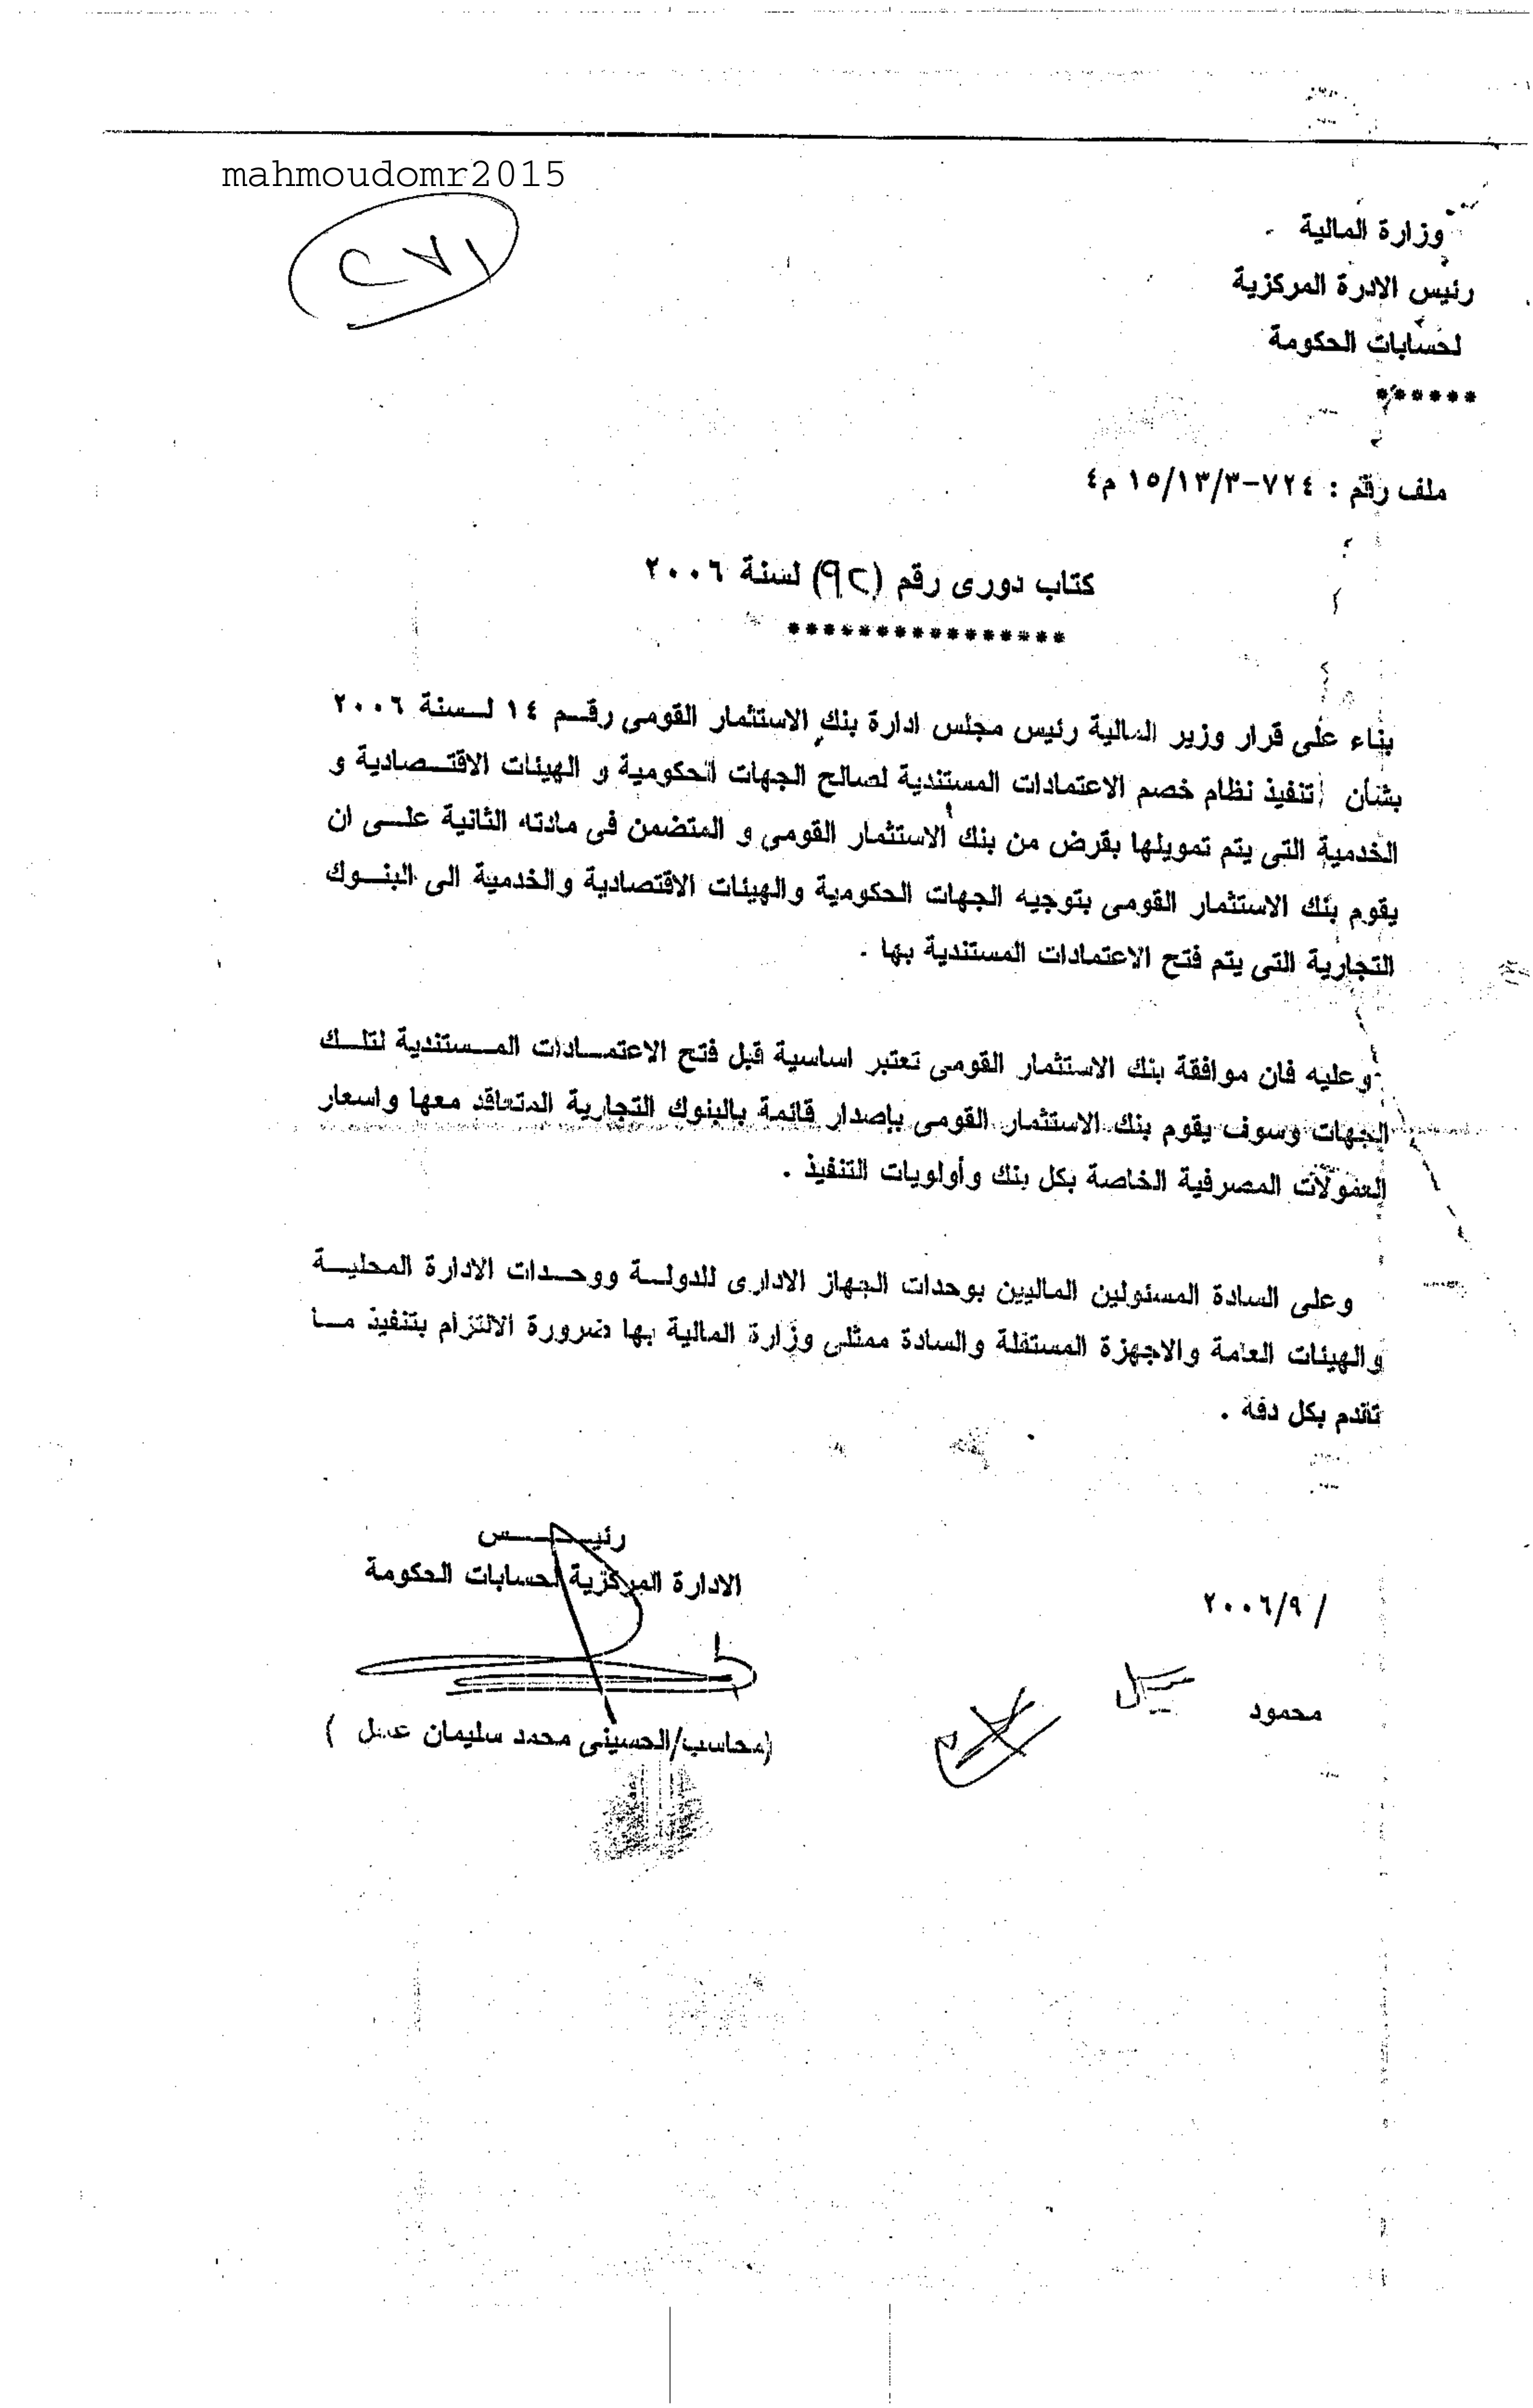 mahmoudomr2015
٢٧١
وزارة المالية
رئيس الادرة المركزية
لحسابات الحكومة
******
ملف رقم : ٧٢٤-١٥/١٣/٣ م٤
كتاب دورى رقم (٩٢) لسنة ٢٠٠٦
****************
بناء على قرار وزير المالية رئيس مجلس ادارة بنك الاستثمار القومى رقـم ١٤ لـسنة ٢٠٠٦
بشأن تنفيذ نظام خصم الاعتمادات المستندية لصالح الجهات الحكومية و الهيئات الاقتـصادية و
الخدمية التى يتم تمويلها بقرض من بنك الاستثمار القومى و المتضمن فى مادته الثانية علـى ان
يقوم بنك الاستثمار القومى بتوجيه الجهات الحكومية والهيئات الاقتصادية والخدمية الى البنـوك
التجارية التى يتم فتح الاعتمادات المستندية بها .
وعليه فان موافقة بنك الاستثمار القومى تعتبر اساسية قبل فتح الاعتمـادات المـستندية لتلـك
الجهات وسوف يقوم بنك الاستثمار القومى بإصدار قائمة بالبنوك التجارية المتعاقد معها واسعار
العمولات المصرفية الخاصة بكل بنك وأولويات التنفيذ .
وعلى السادة المسئولين الماليين بوحدات الجهاز الادارى للدولـة ووحـدات الادارة المحليـة
والهيئات العامة والاجهزة المستقلة والسادة ممثلى وزارة المالية بها ضرورة الالتزام بتنفيذ مـا
تقدم بكل دقة .
رئيـــس
الادارة المركزية لحسابات الحكومة
/ ٢٠٠٦/٩
محمود
(محاسب/الحسينى محمد سليمان عسل )